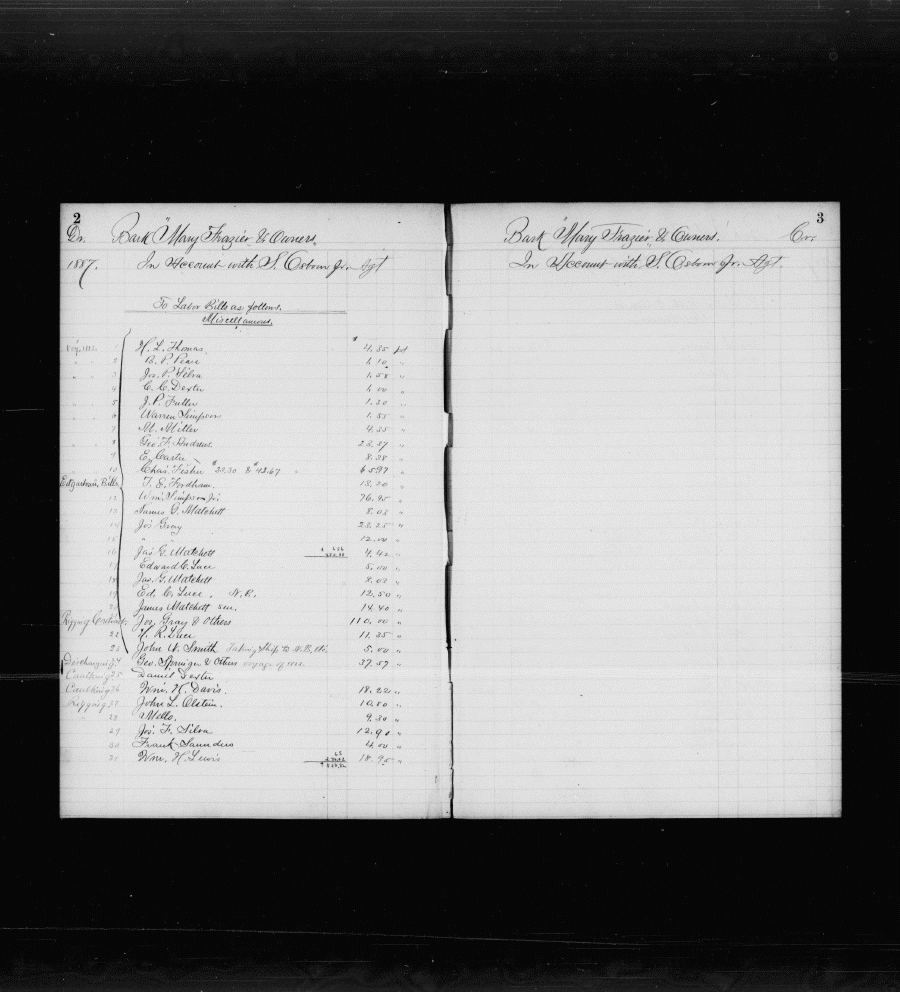 2
Dr. Bark "Mary Frazier" & Owners.
1887. In Account with S. Osborn Jr. Agt
To Labor Bills as follows.
Miscellaneous.
H. L. Thomas $ 4.35 pd
2 B. P. Pease 1.10 "
3 Jos. P. Silva 1.58 "
4 C. C. Dexter 1.00 "
5 J. P. Fuller 1.30 "
6 Warren Simpson 1.55 "
7 M. Miller 4.35 "
8 Geo. F. Andrews. 23.37 "
9 E. Carter 8.38 "
10 Chas. Fisher $23.30 & $42.67 "
Edgartown Bills T. E. Fordham. 13.20 "
12 Wm. Simpson Jr. 76.95 "
13 James G. Matchett 8.03 "
14 Jos Gray 23.25 "
15 " " 12.00 "
16 Jas. G. Matchett 4.42 "
17 Edward C. Luce 5.00 "
18 Jas. G. Matchett 8.02 "
19 Ed. C. Luce. N.B. 12.50 "
20 James Matchett sen. 14.40 "
Rigging Contract. Jos. Gray & Others 110.00 "
22 H. R. Luce 11.35 "
23 John W. Smith Taking Ship to N.B. 5.00 "
Discharging 24 Geo. Springer & Others voyage of 37.57 "
Caulking 25 Daniel Dexter
Caulking 26 Wm. H. Davis. 18.22 "
Rigging 27 John L. Olstein. 10.50 "
28 Mello. 9.30 "
29 Jos. F. Silva 12.90 "
30 Frank Saunders 4.00 "
31 Wm. H. Lewis 18.95 "
3
Bark "Mary Frazier" & Owners. Cr.
In Account with S. Osborn Jr. Agt.